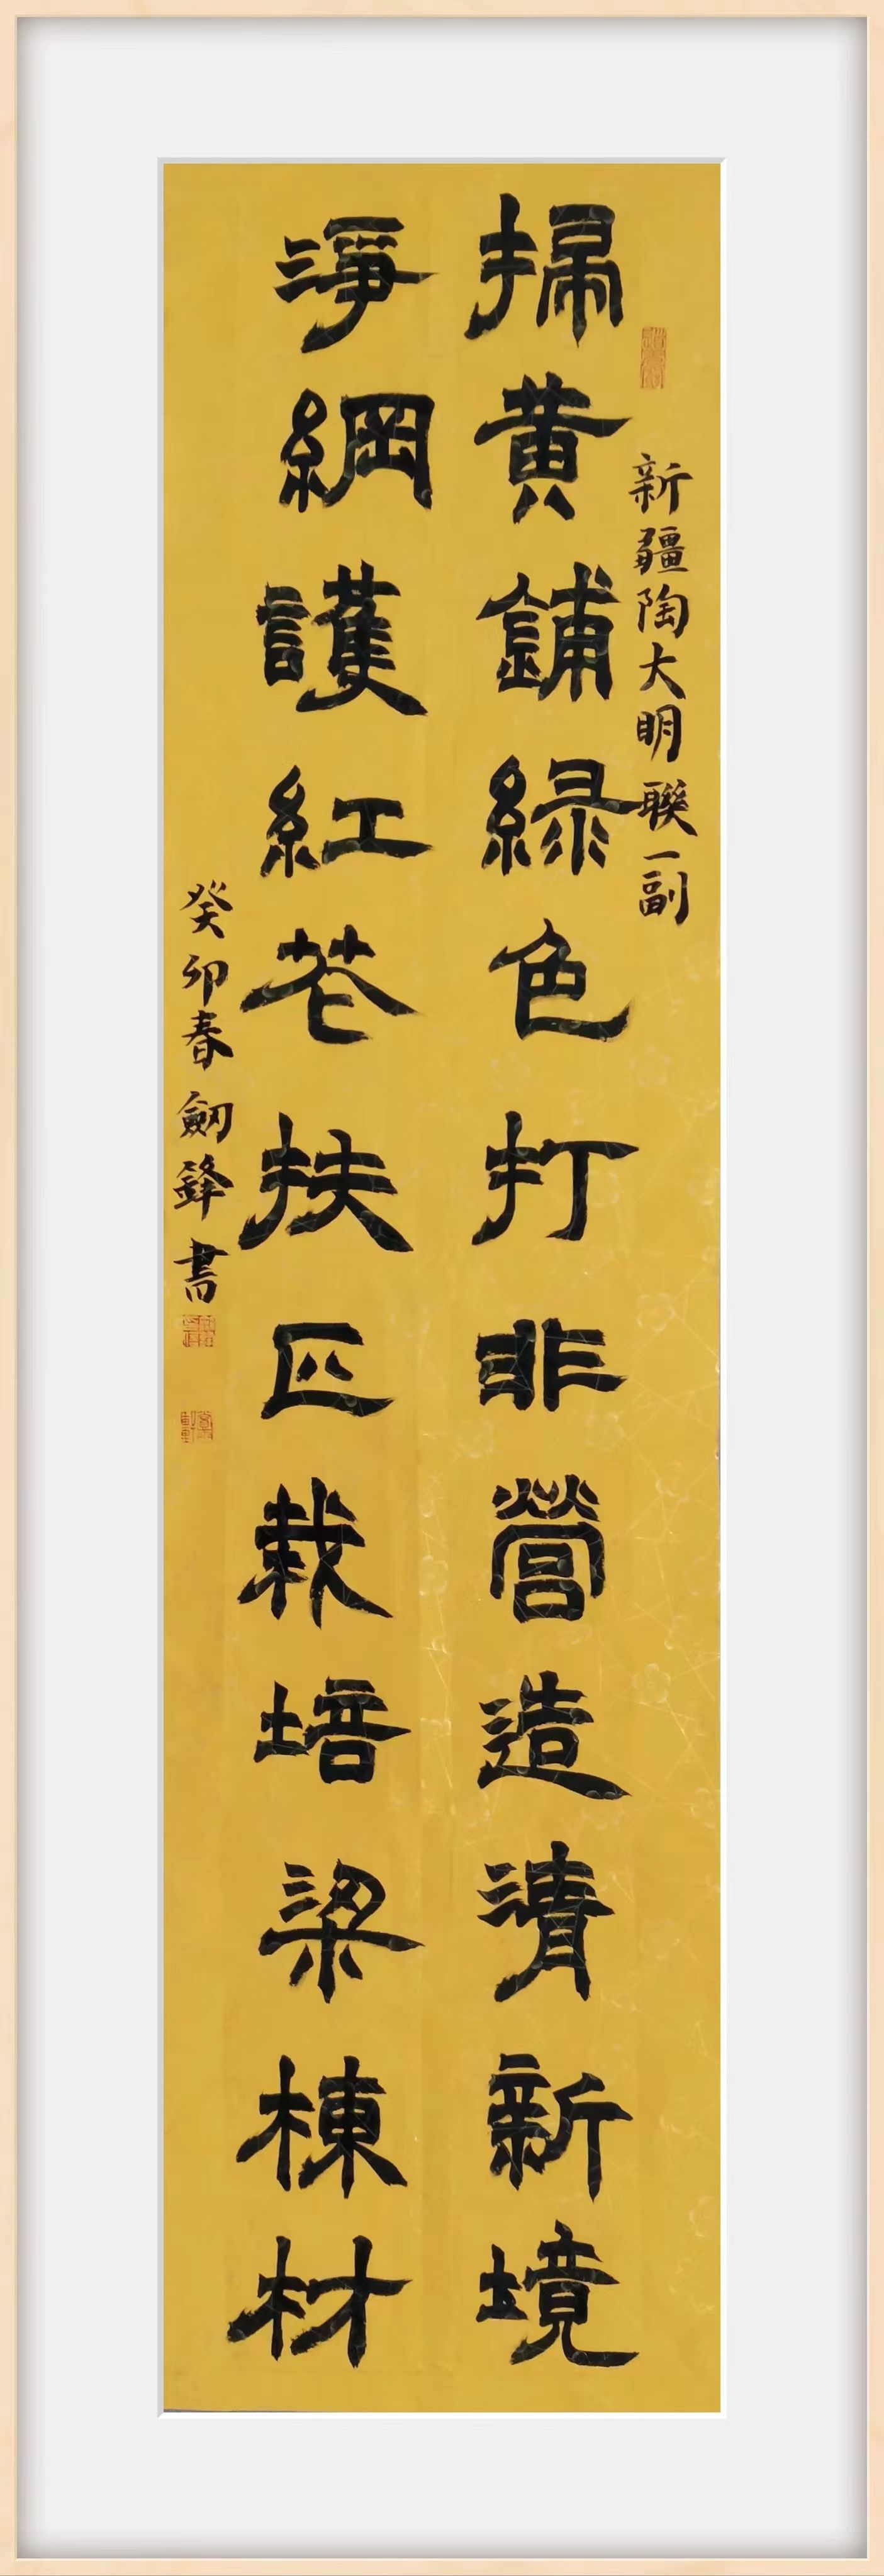 新疆陶大明聯一副
掃黄鋪緑色打非營造清新境
淨綱護紅花扶正栽培梁棟材
癸卯春劍鋒書